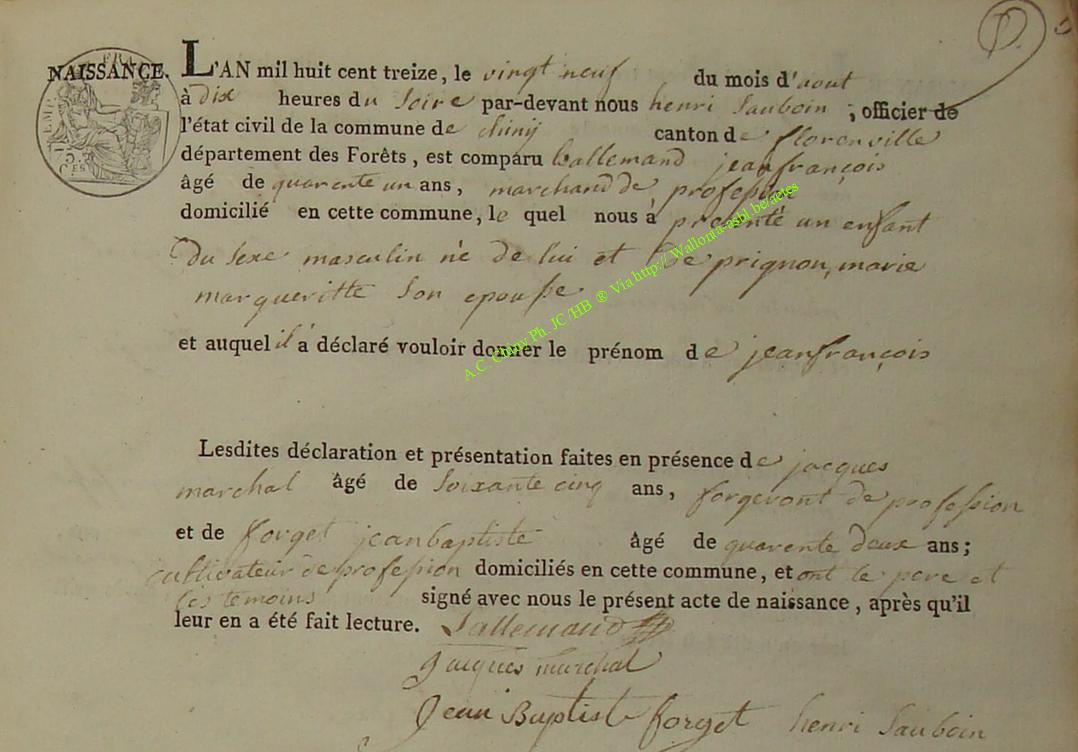 NAISSANCE. L'AN mil huit cent treize, le vingt neuf du mois d'aout
à dix heures du Soire par-devant nous henri Sauboin, officier de
l'état civil de la commune de chinÿ canton de florenville
département des Forêts, est comparu Lallemand jeanfrançois
âgé de quarente un ans, marchand de profession
domicilié en cette commune, le quel nous à présenté un enfant
Du Sexe masculin né de lui et De prignon, marie
margueritte Son epouse
et auquel il a déclaré vouloir donner le prénom de jeanfrançois
Lesdites déclaration et présentation faites en présence de jacques
marchal âgé de Soixante cinq ans, forgeront de profession
et de forget jeanbaptiste âgé de quarente deux ans;
cultivateur de profession domiciliés en cette commune, et ont le pere et
les temoins signé avec nous le présent acte de naissance, après qu'il
leur en a été fait lecture. Lallemand
Jacques marchal
Jean Baptist forget henri Sauboin
A.C. Chiny Ph. JC /HB ® Via http:// Wallonia-asbl be/actes